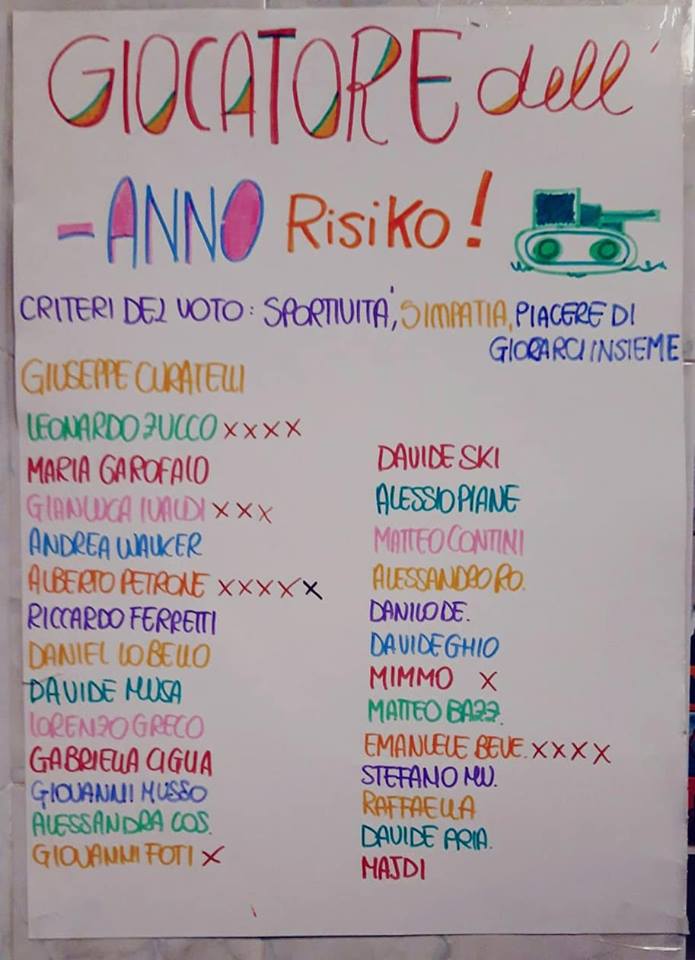 GIOCATORE dell'
-ANNO Risiko!
CRITERI DEL VOTO: SPORTIVITA', SIMPATIA, PIACERE DI
GIOCARCI INSIEME
GIUSEPPE CURATELLI
LEONARDO ZUCCO XXXX
MARIA GAROFALO
GIANLUCA IVALDI XXX
ANDREA WALKER
ALBERTO PETRONE XXXXX
RICCARDO FERRETTI
DANIEL LO BELLO
DAVIDE MUSA
LORENZO GRECO
GABRIELLA CIGLIA
GIOVANNI MUSSO
ALESSANDRA COS.
GIOVANNI FOTI X
DAVIDE SKI
ALESSIO PIANE
MATTEO CONTINI
ALESSANDRO RO.
DANILO DE.
DAVIDE GHIO
MIMMO X
MATTEO BAZZ.
EMANUELE BEVE. XXXX
STEFANO MU.
RAFFAELLA
DAVIDE ARIA.
MAJDI